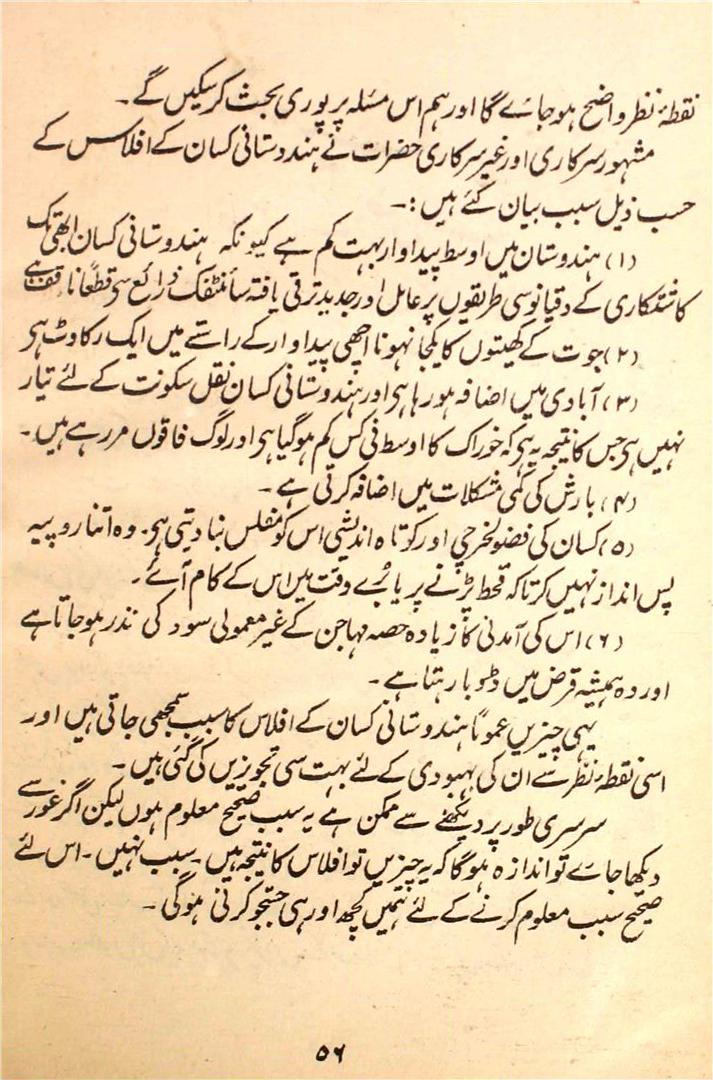 نقطۂ نظر واضح ہو جائے گا اور ہم اس مسٔلہ پر پوری بحث کر سکیں گے۔
مشہور سرکاری اور غیر سرکاری حضرات نے ہندوستانی کسان کے افلاس کے
حسب ذیل سبب بیان کئے ہیں :۔
(۱) ہندوستان میں اوسط پیداوار بہت کم ہے کیونکہ ہندوستانی کسان ابھی تک
کاشتکاری کے دقیانوسی طریقوں پر عامل اور جدید ترقی یافتہ سائنٹفک ذرائع سی قطعاً ناواقف ہے
(۲) جوت کے کھیتوں کا یکجا نہونا اچھی پیداوار کے راستے میں ایک رکاوٹ ہی
(۳) آبادی میں اضافہ ہو رہا ہی اور ہندوستانی کسان نقل سکونت کے لئے تیار
نہیں ہی جس کا نتیجہ یہ ہی کہ خوراک کا اوسط فی کس کم ہو گیا ہی اور لوگ فاقوں مر رہے ہیں۔
(۴) بارش کی کمی مشکلات میں اضافہ کرتی ہے۔
(۵) کسان کی فضولخرچی اور کوتاہ اندیشی اس کو مفلس بنا دیتی ہی۔ وہ اتنا روپیہ
پس انداز نہیں کرتا کہ قحط پڑنے پر یا بُرے وقت میں اس کے کام آئے۔
(۶) اس کی آمدنی کا زیادہ حصہ مہاجن کے غیر معمولی سود کی نذر ہو جاتا ہے
اور وہ ہمیشہ قرض میں ڈوبا رہتا ہے۔
یہی چیزیں عموماً ہندوستانی کسان کے افلاس کا سبب سمجھی جاتی ہیں اور
اسی نقطۂ نظر سے ان کی بہبودی کے لئے بہت سی تجویزیں کی گئی ہیں۔
سرسری طور پر دیکھنے سے ممکن ہے یہ سبب صحیح معلوم ہوں لیکن اگر غور سے
دیکھا جائے تو اندازہ ہو گا کہ یہ چیزیں تو افلاس کا نتیجہ ہیں۔ سبب نہیں۔ اس لئے
صحیح سبب معلوم کرنے کے لئے ہمیں کچھ اور ہی جستجو کرنی ہو گی۔
۵۶